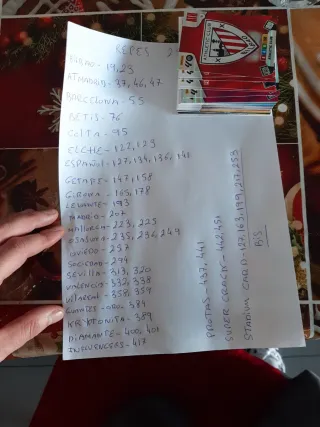 REPES 2
BILBAO - 19, 23
AT MADRID - 37, 46, 47
BARCELONA - 55
BETIS - 76
CELTA - 95
ELCHE - 122, 123
ESPAÑOL - 127, 134, 136, 142
GETAFE - 147, 158
GIRONA - 165, 178
LEVANTE - 193
MADRID - 207
MALLORCA - 223, 225
OSASUNA - 235, 236, 249
OVIEDO - 257
SOCIEDAD - 274
SEVILLA - 313, 320
VALENCIA - 332, 338
VILLAREAL - 358, 359
GUANTES - 379
KRYPTONITA - 389
DIAMANTE - 400, 401
INFLUENCERS - 417
PROTAS - 437, 441
SUPER CRACKS - 442, 451
STADIUM CARD - 127, 163, 199, 217, 253
BIS